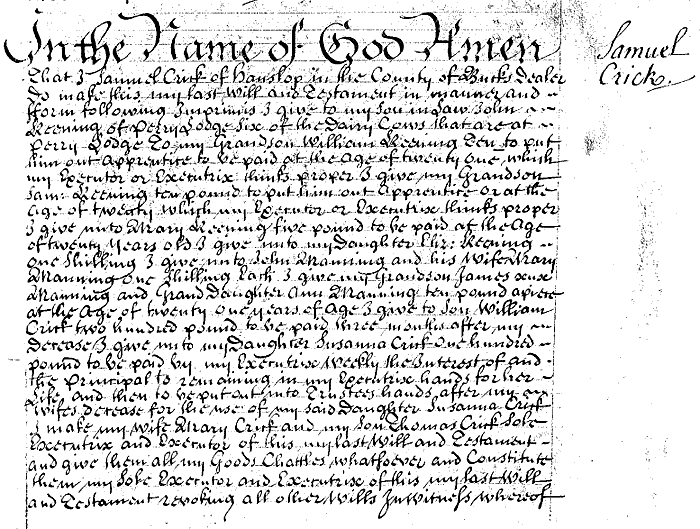 In the Name of God Amen
Samuel
Crick
That I Samuel Crick of Hanslop in the County of Bucks Dealer
Do make this my last Will and Testament in manner and
fform following Imprimis I give to my Son in Law John
Keening of Perry Lodge Six of the Dairy Cows that are at
Perry Lodge To my Grandson William Keening Ten to put
him out Apprentice to be paid at the Age of twenty one which
my Executor or Executrix thinks proper I give my Grandson
Sam: Keening ten pound to put him out Apprentice or at the
Age of twenty which my Executor or Executrix thinks proper
I give unto Mary Keening five pound to be paid at the Age
of twenty years old I give unto my Daughter Eliz: Keening
One Shilling I give unto John Manning and his Wife Mary
Manning One Shilling Each I give my Grandson James
Manning and Grand Daughter Ann Manning ten pound apiece
at the Age of twenty one years of Age I give to Son William
Crick two hundred pound to be paid three months after my
decease I give unto my Daughter Susanna Crick One hundred
pound to be paid by my Executrix Weekly the Interest of and
the principal to remaining in my Executrix hands for her
Life and then to be put out into Trustees hands after my
Wifes decease for the use of my said Daughter Susanna Crick
I make my Wife Mary Crick and my Son Thomas Crick Sole
Executrix and Executor of this my last Will and Testament
and give them all my Goods Chattles whatsoever and Constitute
them my Sole Executor and Executrix of this my last Will
and Testament revoking all other Wills In Witness whereof